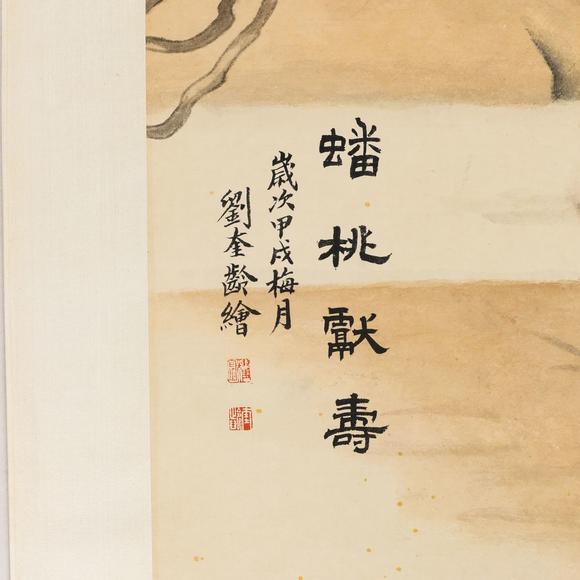 蟠桃獻壽
歲次甲戌梅月
劉奎齡繪